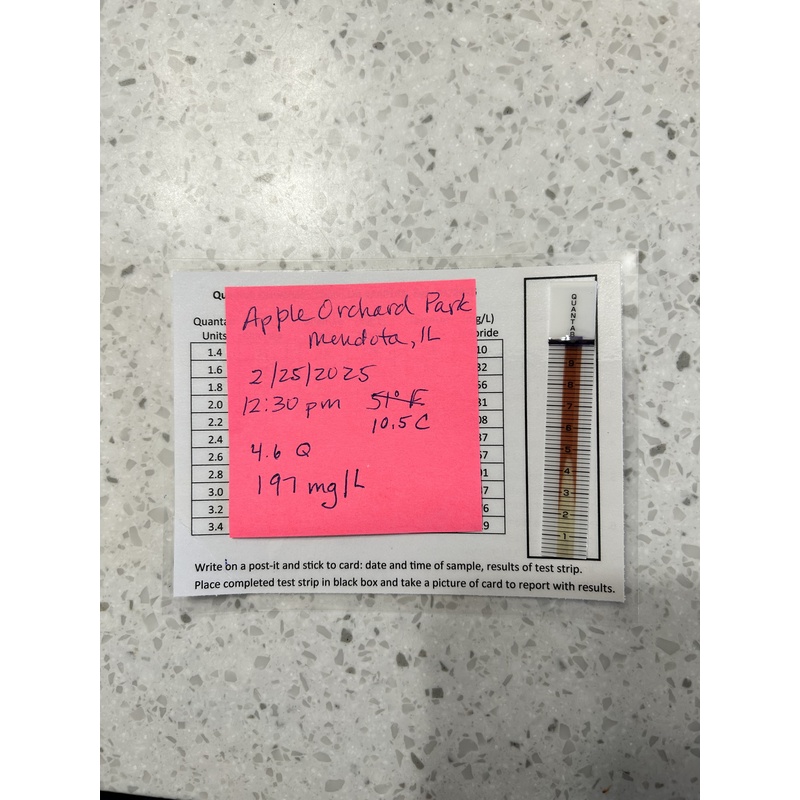 Apple Orchard Park
Mendota, IL
2/25/2025
12:30 pm 51° F
10.5 C
4.6 Q
197 mg/L
Units
1.4
1.6
1.8
2.0
2.2
2.4
2.6
2.8
3.0
3.2
3.4
QUANTAB
9
8
7
6
5
4
3
2
1
Write on a post-it and stick to card: date and time of sample, results of test strip.
Place completed test strip in black box and take a picture of card to report with results.